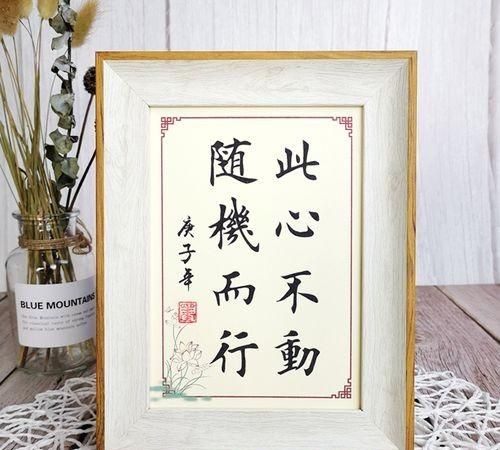 此心不動
随機而行
庚子年
BLUE MOUNTAINS